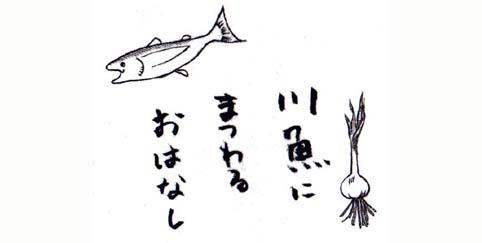 川魚に
まつわる
おはなし